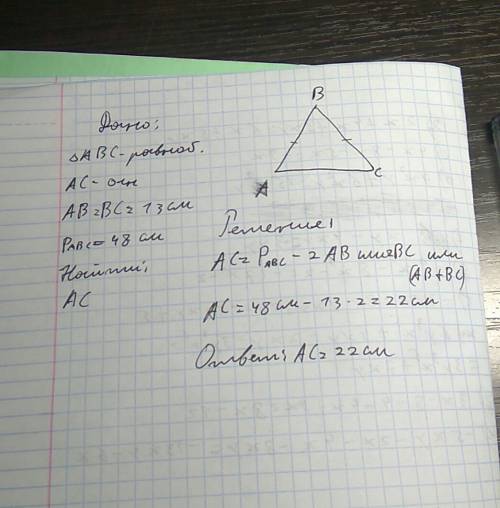 Дано:
△ABC - равноб.
AC - осн
AB = BC = 13 см
PABC = 48 см
Найти:
AC
B
A
C
Решение:
AC = PABC - 2 AB или 2BC или
(AB + BC)
AC = 48 см - 13 · 2 = 22 см
Ответ: AC = 22 см